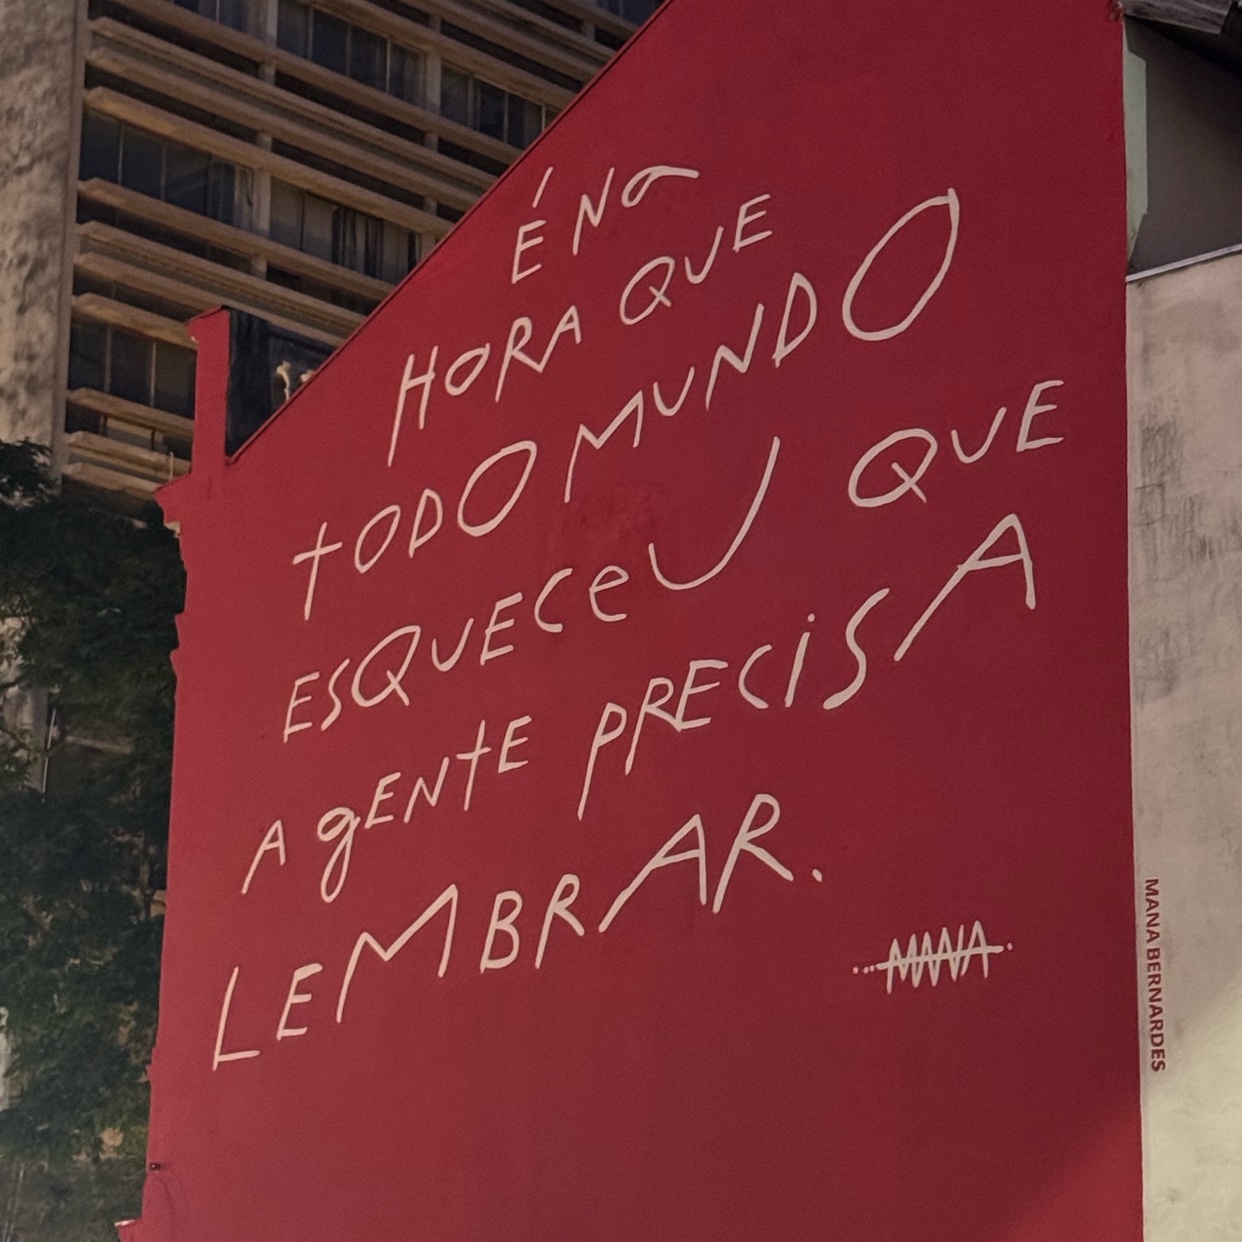 É Na
HORA QUE
tODO MUNDO
ESQUECeU QUE
A gENtE PRECiSA
LEMBRAR.
...MANA.
MANA BERNARDES